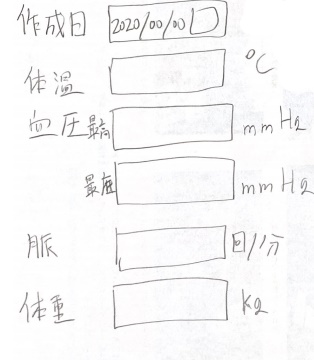 作成日 2020/00/00
体温 ℃
血圧最高 mmHg
最低 mmHg
脈 回/1分
体重 kg